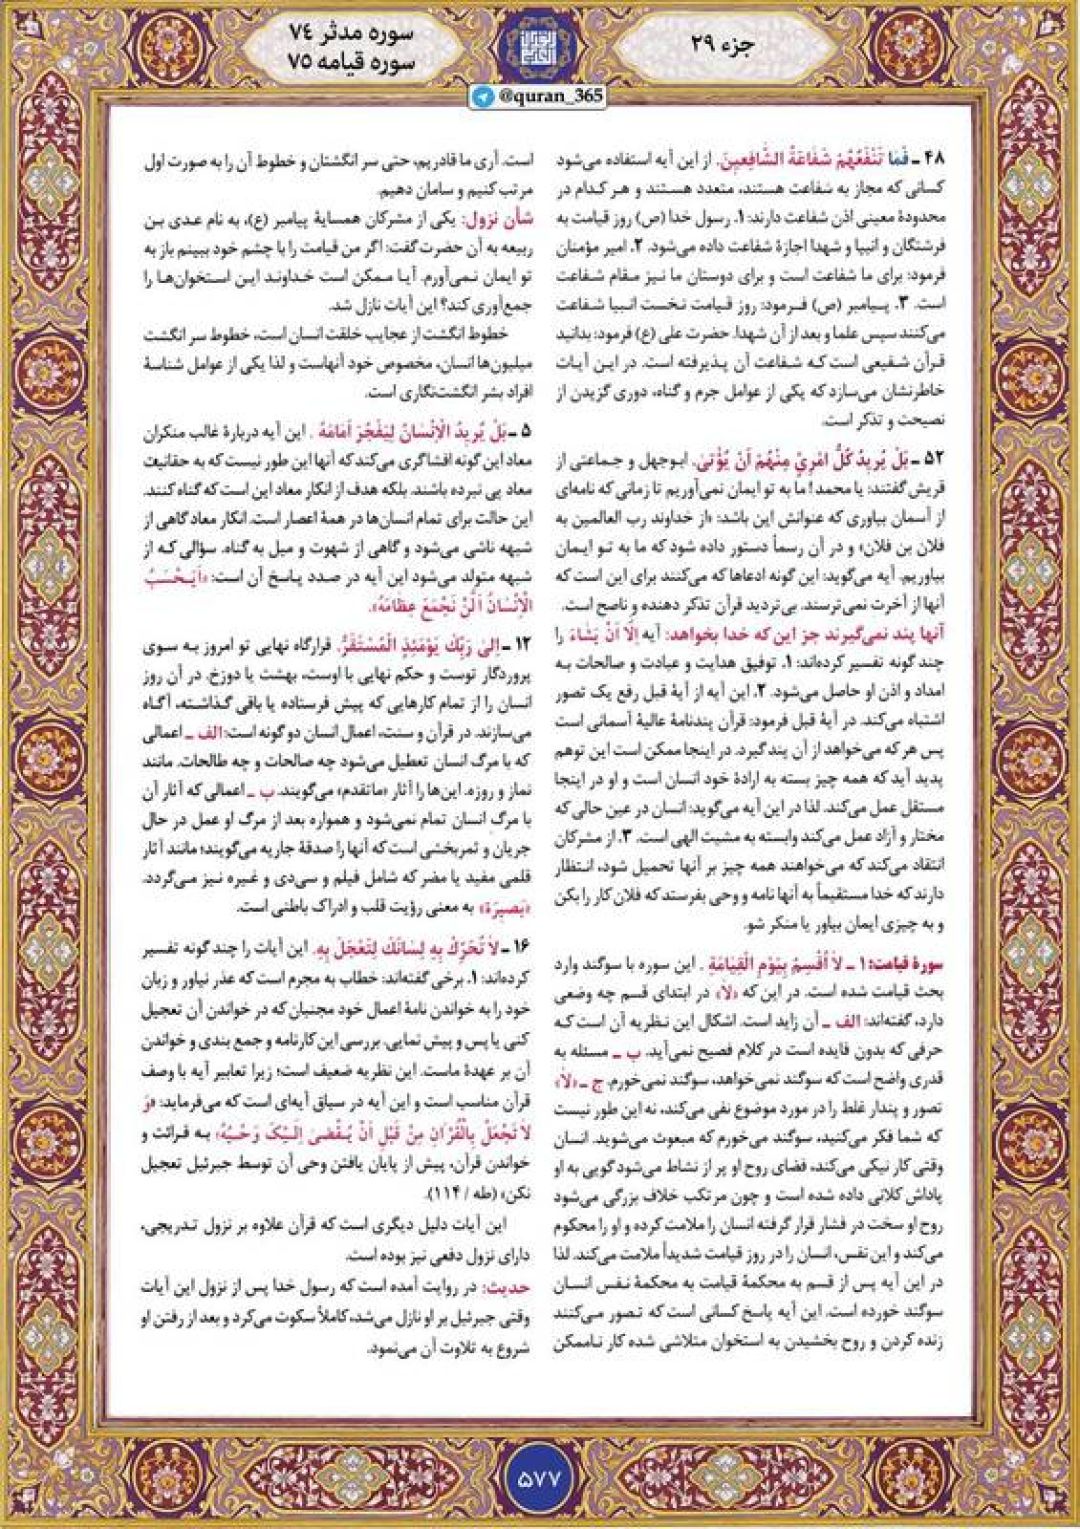 جزء ۲۹
سوره مدثر ۷٤
سوره قیامه ۷۵
@quran_365
۴۸ ـ فَما تَنْفَعُهُمْ شَفاعَةُ الشّافِعینَ. از این آیه استفاده می‌شود
کسانی که مجاز به شفاعت هستند، متعدد هستند و هر کدام در
محدودهٔ معینی اذن شفاعت دارند: ۱. رسول خدا (ص) روز قیامت به
فرشتگان و انبیا و شهدا اجازهٔ شفاعت داده می‌شود. ۲. امیر مؤمنان
فرمود: برای ما شفاعت است و برای دوستان ما نیز مقام شفاعت
است. ۳. پیامبر (ص) فرمود: روز قیامت نخست انبیا شفاعت
می‌کنند سپس علما و بعد از آن شهدا. حضرت علی (ع) فرمود: بدانید
قرآن شفیعی است که شفاعت آن پذیرفته است. در این آیات
خاطرنشان می‌سازد که یکی از عوامل جرم و گناه، دوری گزیدن از
نصیحت و تذکر است.
۵۲ ـ بَلْ یُریدُ کُلُّ امْرِئٍ مِنْهُمْ أَنْ یُؤْتىٰ. ابوجهل و جماعتی از
قریش گفتند: یا محمد! ما به تو ایمان نمی‌آوریم تا زمانی که نامه‌ای
از آسمان بیاوری که عنوانش این باشد: «از خداوند رب العالمین به
فلان بن فلان» و در آن رسماً دستور داده شود که ما به تو ایمان
بیاوریم. آیه می‌گوید: این گونه ادعاها که می‌کنند برای این است که
آنها از آخرت نمی‌ترسند. بی‌تردید قرآن تذکر دهنده و ناصح است.
آنها پند نمی‌گیرند جز این که خدا بخواهد: آیه إِلّا أَنْ یَشاءَ را
چند گونه تفسیر کرده‌اند: ۱. توفیق هدایت و عبادت و صالحات به
امداد و اذن او حاصل می‌شود. ۲. این آیه از آیهٔ قبل رفع یک تصور
اشتباه می‌کند. در آیهٔ قبل فرمود: قرآن پندنامهٔ عالیهٔ آسمانی است
پس هر که می‌خواهد از آن پند گیرد. در اینجا ممکن است این توهم
پدید آید که همه چیز بسته به ارادهٔ خود انسان است و او در اینجا
مستقل عمل می‌کند. لذا در این آیه می‌گوید: انسان در عین حالی که
مختار و آزاد عمل می‌کند وابسته به مشیت الهی است. ۳. از مشرکان
انتقاد می‌کند که می‌خواهند همه چیز بر آنها تحمیل شود، انتظار
دارند که خدا مستقیماً به آنها نامه و وحی بفرستد که فلان کار را بکن
و به چیزی ایمان بیاور یا منکر شو.
سورهٔ قیامت: ۱ ـ لا أُقْسِمُ بِیَوْمِ الْقِیامَةِ . این سوره با سوگند وارد
بحث قیامت شده است. در این که «لا» در ابتدای قسم چه وضعی
دارد، گفته‌اند: الف ـ آن زاید است. اشکال این نظریه آن است که
حرفی که بدون فایده است در کلام فصیح نمی‌آید. ب ـ مسئله به
قدری واضح است که سوگند نمی‌خواهد، سوگند نمی‌خورم. ج ـ «لا»
تصور و پندار غلط را در مورد موضوع نفی می‌کند، نه این طور نیست
که شما فکر می‌کنید، سوگند می‌خورم که مبعوث می‌شوید. انسان
وقتی کار نیکی می‌کند، فضای روح او پر از نشاط می‌شود گویی به او
پاداش کلانی داده شده است و چون مرتکب خلاف بزرگی می‌شود
روح او سخت در فشار قرار گرفته انسان را ملامت کرده و او را محکوم
می‌کند و این نفس، انسان را در روز قیامت شدیداً ملامت می‌کند. لذا
در این آیه پس از قسم به محکمهٔ قیامت به محکمهٔ نفس انسان
سوگند خورده است. این آیه پاسخ کسانی است که تصور می‌کنند
زنده کردن و روح بخشیدن به استخوان متلاشی شده کار ناممکن
است. آری ما قادریم، حتی سر انگشتان و خطوط آن را به صورت اول
مرتب کنیم و سامان دهیم.
شأن نزول: یکی از مشرکان همسایهٔ پیامبر (ع)، به نام عدی بن
ربیعه به آن حضرت گفت: اگر من قیامت را با چشم خود ببینم باز به
تو ایمان نمی‌آورم. آیا ممکن است خداوند این استخوان‌ها را
جمع‌آوری کند؟ این آیات نازل شد.
خطوط انگشت از عجایب خلقت انسان است، خطوط سر انگشت
میلیون‌ها انسان، مخصوص خود آنهاست و لذا یکی از عوامل شناسهٔ
افراد بشر انگشت‌نگاری است.
۵ ـ بَلْ یُریدُ الْإِنْسانُ لِیَفْجُرَ أَمامَهُ . این آیه دربارهٔ غالب منکران
معاد این گونه افشاگری می‌کند که آنها این طور نیست که به حقانیت
معاد پی نبرده باشند. بلکه هدف از انکار معاد این است که گناه کنند.
این حالت برای تمام انسان‌ها در همهٔ اعصار است. انکار معاد گاهی از
شبهه ناشی می‌شود و گاهی از شهوت و میل به گناه. سؤالی که از
شبهه متولد می‌شود این آیه در صدد پاسخ آن است: «أَیَحْسَبُ
الْإِنْسانُ أَلَّنْ نَجْمَعَ عِظامَهُ».
۱۲ ـ إِلىٰ رَبِّكَ یَوْمَئِذٍ الْمُسْتَقَرُّ. قرارگاه نهایی تو امروز به سوی
پروردگار توست و حکم نهایی با اوست، بهشت یا دوزخ. در آن روز
انسان را از تمام کارهایی که پیش فرستاده یا باقی گذاشته، آگاه
می‌سازند. در قرآن و سنت، اعمال انسان دو گونه است: الف ـ اعمالی
که با مرگ انسان تعطیل می‌شود چه صالحات و چه طالحات. مانند
نماز و روزه. این‌ها را آثار «ماتقدم» می‌گویند. ب ـ اعمالی که آثار آن
با مرگ انسان تمام نمی‌شود و همواره بعد از مرگ او عمل در حال
جریان و ثمربخشی است که آنها را صدقهٔ جاریه می‌گویند؛ مانند آثار
قلمی مفید یا مضر که شامل فیلم و سی‌دی و غیره نیز می‌گردد.
«بَصیرَة» به معنی رؤیت قلب و ادراک باطنی است.
۱۶ ـ لا تُحَرِّكْ بِهِ لِسانَكَ لِتَعْجَلَ بِهِ. این آیات را چند گونه تفسیر
کرده‌اند: ۱. برخی گفته‌اند: خطاب به مجرم است که عذر نیاور و زبان
خود را به خواندن نامهٔ اعمال خود مجنبان که در خواندن آن تعجیل
کنی یا پس و پیش نمایی. بررسی این کارنامه و جمع بندی و خواندن
آن بر عهدهٔ ماست. این نظریه ضعیف است؛ زیرا تعابیر آیه با وصف
قرآن مناسب است و این آیه در سیاق آیه‌ای است که می‌فرماید: «وَ
لا تَعْجَلْ بِالْقُرْآنِ مِنْ قَبْلِ أَنْ یُقْضىٰ إِلَیْكَ وَحْیُهُ» به قرائت و
خواندن قرآن، پیش از پایان یافتن وحی آن توسط جبرئیل تعجیل
نکن» (طه / ۱۱۴).
این آیات دلیل دیگری است که قرآن علاوه بر نزول تدریجی،
دارای نزول دفعی نیز بوده است.
حدیث: در روایت آمده است که رسول خدا پس از نزول این آیات
وقتی جبرئیل بر او نازل می‌شد، کاملاً سکوت می‌کرد و بعد از رفتن او
شروع به تلاوت آن می‌نمود.
۵۷۷